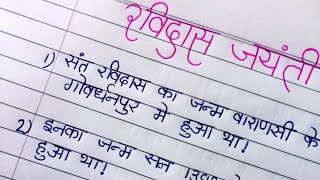 रविदास जयंती
1) संत रविदास का जन्म वाराणसी के
गोवर्धनपुर में हुआ था।
2) इनका जन्म सन
हुआ था।